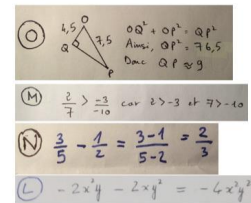 O
O
4,5
7,5
Q
P
OQ² + OP² = QP²
Ainsi, QP² = 76,5
Donc QP ≈ 9
M
2/7 > -3/-10 car 2 > -3 et 7 > -10
N
3/5 - 1/2 = 3-1/5-2 = 2/3
L
-2x²y - 2xy² = -4x²y²